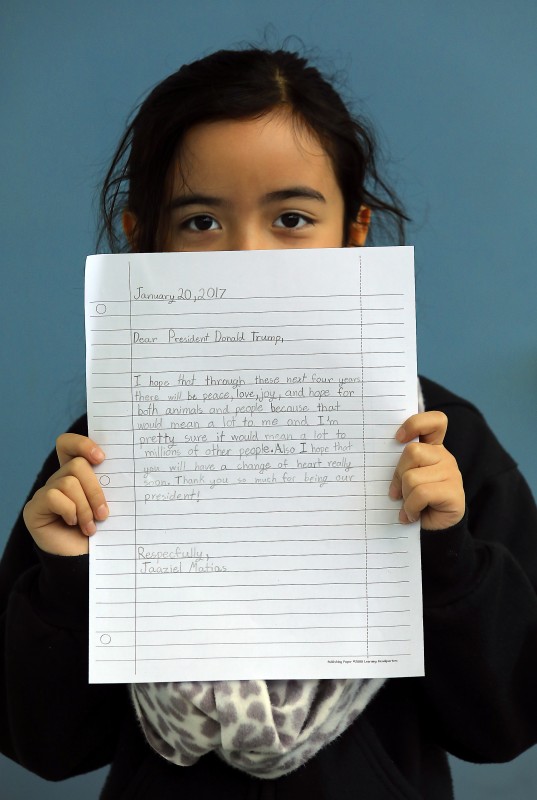 January 20, 2017
Dear President Donald Trump,
I hope that through these next four years
there will be peace, love, joy, and hope for
both animals and people because that
would mean a lot to me and I'm
pretty sure it would mean a lot to
millions of other people. Also I hope that
you will have a change of heart really
soon. Thank you so much for being our
president!
Respecfully,
Jaaziel Matias